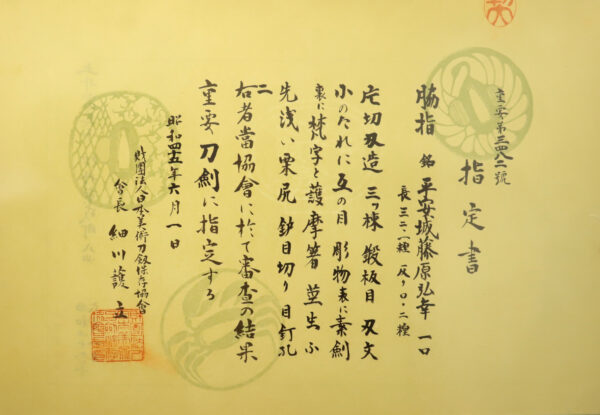 重要第三四八二號
指定書
脇指 銘 平安城藤原弘幸 一口
長三二・一糎 反り〇・二糎
片切刃造 三ツ棟 鍛板目 刃文
小のたれに互の目 彫物表に素劍
裏に梵字と護摩箸 茎生ぶ
先浅い栗尻 鑢目切り 目釘孔
二
右者當協會に於て審査の結果
重要刀劍に指定する
昭和四十五年六月一日
財團法人日本美術刀劍保存協會
會長 細川護立